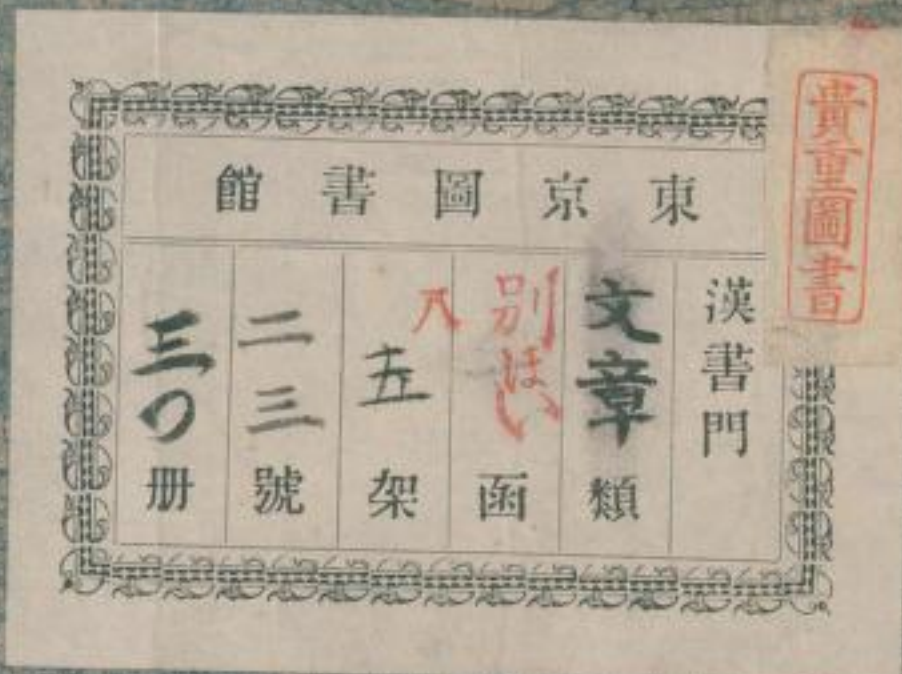 貴重圖書
東京圖書館
漢書門
文章類
別ほい函
八五架
二三號
三〇册